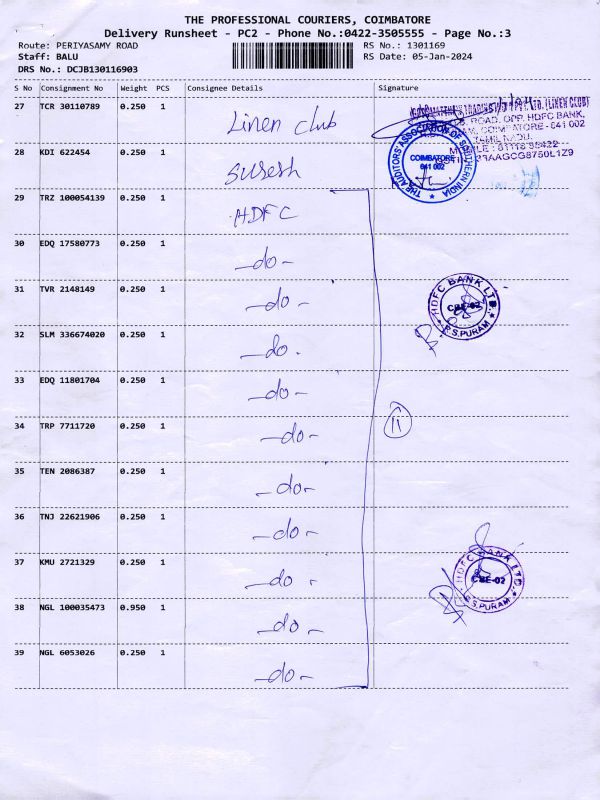 THE PROFESSIONAL COURIERS, COIMBATORE
Delivery Runsheet - PC2 - Phone No.:0422-3505555 - Page No.:3
Route: PERIYASAMY ROAD RS No.: 1301169
Staff: BALU RS Date: 05-Jan-2024
DRS No.: DCJB130116903
S No Consignment No Weight PCS Consignee Details Signature
27 TCR 30110789 0.250 1 Linen club
(LINEN CLUB)
ROAD, OPP. HDFC BANK,
COIMBATORE - 641 002
TAMIL NADU.
THE AUDITORS' ASSOCIATION OF SOUTHERN INDIA
COIMBATORE
641 002
28 KDI 622454 0.250 1 Suresh
29 TRZ 100054139 0.250 1 HDFC
30 EDQ 17580773 0.250 1 -do-
31 TVR 2148149 0.250 1 -do-
HDFC BANK LTD.
CBE-02
R.S.PURAM
32 SLM 336674020 0.250 1 -do.
33 EDQ 11801704 0.250 1 -do-
34 TRP 7711720 0.250 1 -do-
11
35 TEN 2086387 0.250 1 -do-
36 TNJ 22621906 0.250 1 -do-
37 KMU 2721329 0.250 1 -do-
HDFC BANK LTD.
CBE-02
R.S.PURAM
38 NGL 100035473 0.950 1 -do-
39 NGL 6053026 0.250 1 -do-